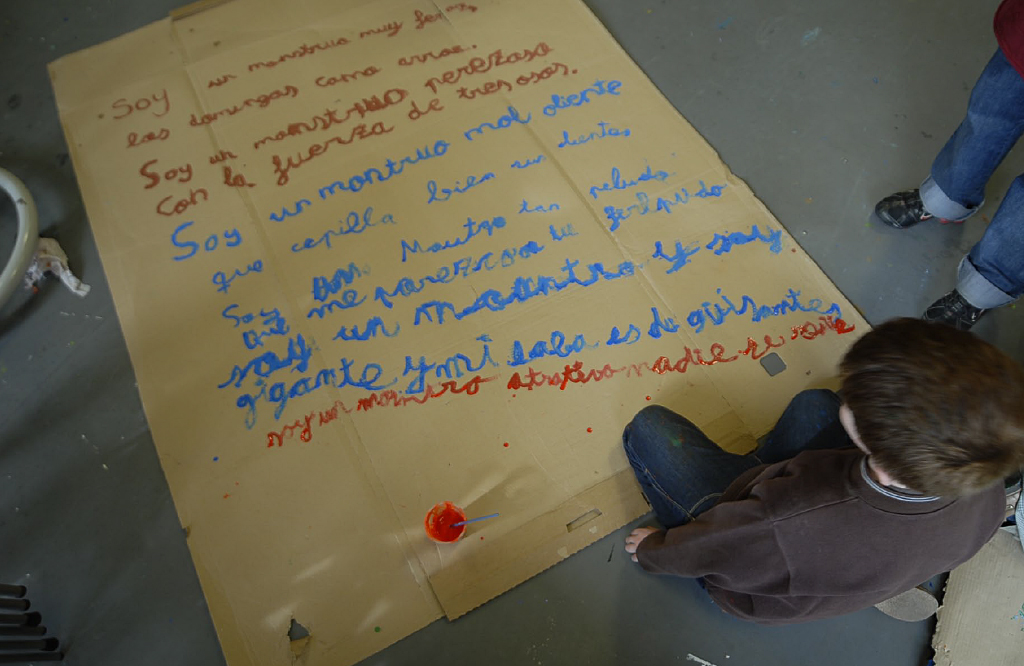 Soy un monstruo muy feroz,
los domingos como arroz.
Soy un monstruo perezoso
con la fuerza de tres osos.
Soy un montruo mol oliente
que cepilla bien sus dientes
Soy un Mostro tan peludo
que me parezco a tu felpudo
soy un mountro y soy
gigante y mi baba es de guisantes
soy un monstro atrativo nadie se